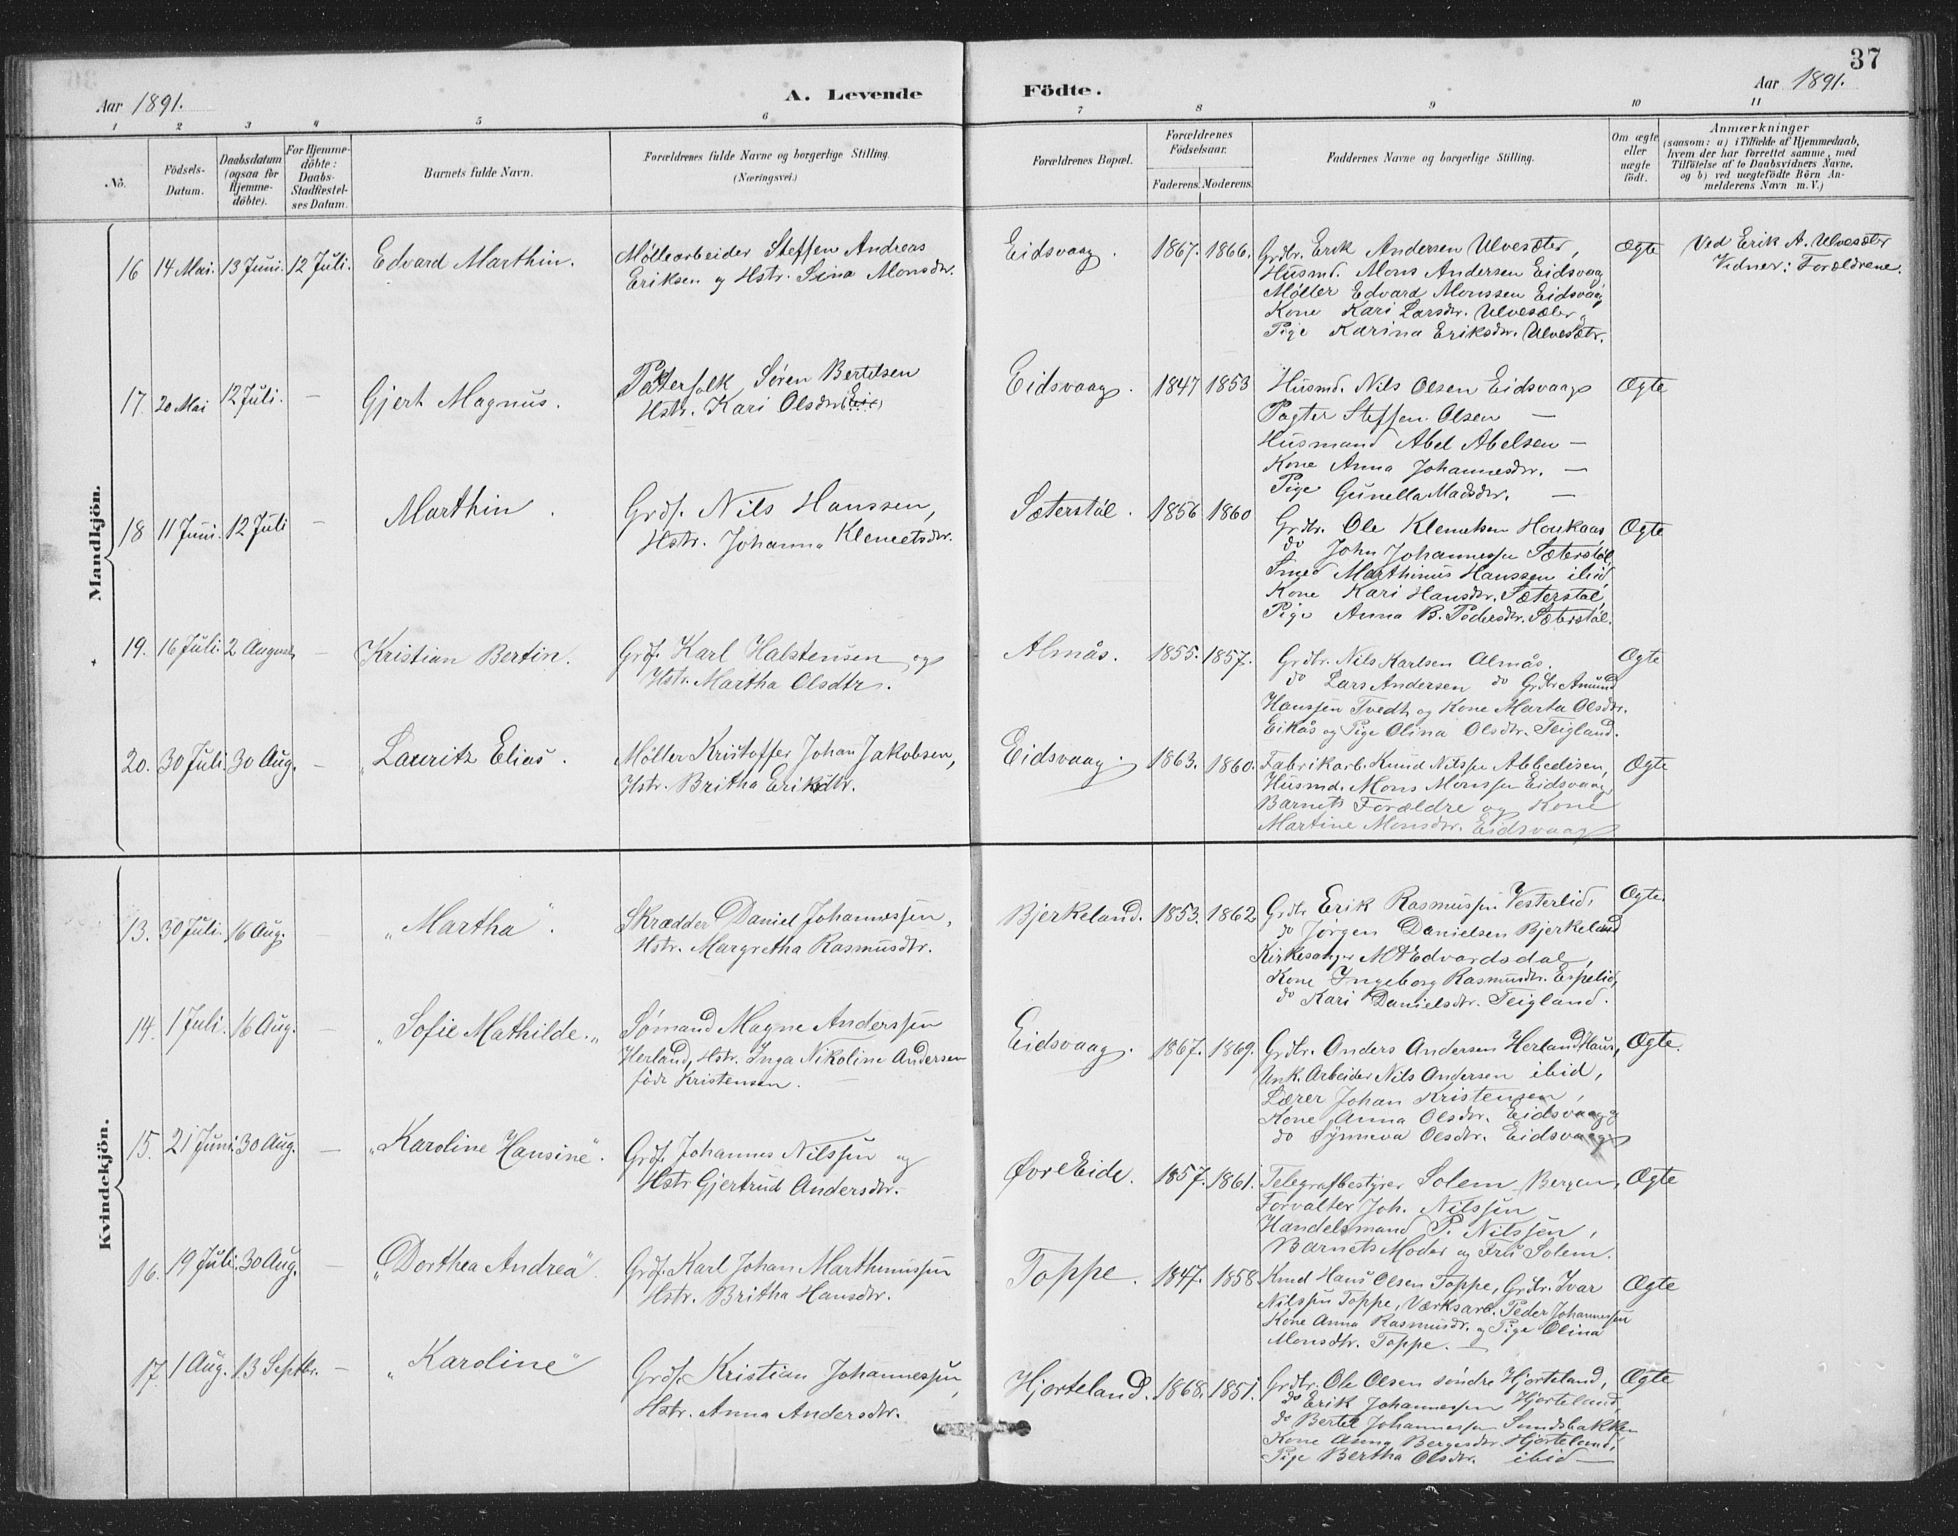 37
Aar 1891.
A. Levende Födte.
Aar 1891.
1 2 3 4 5 6 7 8 9 10 11
No.
Födsels-Datum.
Daabsdatum (ogsaa for Hjemme-döbte).
For Hjemme-döbte: Daabs-Stadfæstel-ses Datum.
Barnets fulde Navn.
Forældrenes fulde Navne og borgerlige Stilling.
(Næringsvei.)
Forældrenes Bopæl.
Forældrenes Födselsaar.
Faderens. Moderens.
Faddernes Navne og borgerlige Stilling.
Om ægte eller uægte födt.
Anmærkninger
(saasom: a) i Tilfælde af Hjemmedaab,
hvem der har forrettet samme, med
Tilföielse af to Daabsvidners Navne,
og b) ved uægtefödte Börn An-
melderens Navn m. V.)
Mandkjön.
16 14 Mai. 13 Juni. 12 Juli. Edvard Marthin.
Møllearbeider Steffen Andreas
Eriksen og Hstr. Sina Monsdtr.
Eidsvaag. 1867. 1866.
Grdbr. Erik Andersen Ulvesæter,
Husmd. Mons Andersen Eidsvaag
Møller Edvard Monssen Eidsvaag
Kone Kari Larsdtr. Ulvesæter,
Pige Karina Eriksdtr. Ulvesætr.
Ægte
Ved Erik A. Ulvesæter
Vidner: Forældrene.
17. 20 Mai 12 Juli. – Gjert Magnus.
Søren Bertelsen
Hstr. Kari Olsdtr
Eidsvaag. 1847 1853
Husmd. Nils Olsen Eidsvaag
Pagter Steffen Olsen —
Husmand Abel Abelsen —
Kone Anna Johannesdtr. —
Pige Gunella Madsdtr. —
Ægte
18 11 Juni. 12 Juli – Marthin.
Grdf. Nils Hanssen,
Hstr. Johanna Klemetsdtr.
Sæterstöl. 1856 1860
Grdbr. Ole Klemetsen Houkaas,
do John Johannessen Sæterstöl,
Smed Marthinus Hanssen ibid
Kone Kari Hansdtr. Sæterstöl,
Pige Anna B. Pedersdtr. Sæterstöl.
Ægte
19. 16 Juli. 2 August – Kristian Bertin.
Grdf. Karl Halstensen og
Hstr. Martha Olsdtr.
Almås. 1855. 1857.
Grdbr. Nils Karlsen Almås.
do Lars Andersen do Grdbr Amund
Hanssen Tvedt, og Kone Marta Olsdtr.
Eikås og Pige Olina Olsdtr Teigland.
Ægte
20. 30 Juli. 30 Aug. – „Lauritz Elias.
Møller Kristoffer Johan Jakobsen,
Hstr. Britha Eriksdtr.
Eidsvaag. 1863. 1860.
Fabrikarb. Knud Nilssen Abbedisen,
Husmd. Mons Monssen Eidsvaag,
Barnets Forældre og Kone
Martine Monsdtr. Eidsvaag
Ægte
Kvindekjön.
13. 30 Juli. 16 Aug. – „Martha“.
Skrædder Daniel Johannessen,
Hstr. Margretha Rasmusdtr.
Bjerkeland. 1853. 1862
Grdbr Erik Rasmussen Vesterlid,
do Jørgen Danielsen Bjerkeland
Kirkesanger M. A. Edvardsdal,
Kone Ingeborg Rasmusdtr. Espelid,
do Kari Danielsdtr. Teigland.
Ægte.
14. 1 Juli. 16 Aug. – „Sofie Mathilde.„
Sømand Magne Anderssen
Herland, Hstr. Inga Nikoline Andersen
født Kristensen. —
Eidsvaag. 1867. 1869.
Grdbr. Anders Andersen Herland Haus,
Unk. Arbeider Nils Andersen ibid,
Lærer Johan Kristensen,
Kone Anna Olsdtr. Eidsvaag og
do Synneva Olsdtr. Eidsvaag
Ægte.
15. 21 Juni. 30 Aug. — „Karoline Hansine“.
Grdf. Johannes Nilssen og
Hstr Gjertrud Andersdtr.
Øvre Eide. 1857. 1861.
Telegrafbestyrer Solem Bergen,
Forvalter Joh. Nilssen
Handelsmand P. Nilssen,
Barnets Moder og Fru Solem.
Ægte
16. 19 Juli. 30 Aug. – „Dorthea Andrea“.
Grdf. Karl Johan Marthinussen
Hstr. Britha Hansdtr.
Toppe. 1847. 1858
Knud Hans Olsen Toppe, Grdbr. Ivar
Nilssen Toppe, Værksarb. Peder Johannessen
Kone Anna Rasmusdtr. og Pige Olina
Monsdtr. Toppe. —
Ægte
17. 1 Aug. 13 Septbr. – „Karoline“
Grdf. Kristian Johannessen,
Hstr. Anna Andersdtr.
Hjorteland. 1868. 1851.
Grdbr. Ole Olsen søndre Hjorteland,
do Erik Johannessen Hjorteland,
do Bertel Johannessen Sundsbakken
Kone Anna Børgesdtr. Hjorteland,
Pige Bertha Olsdtr. ibid —
Ægte